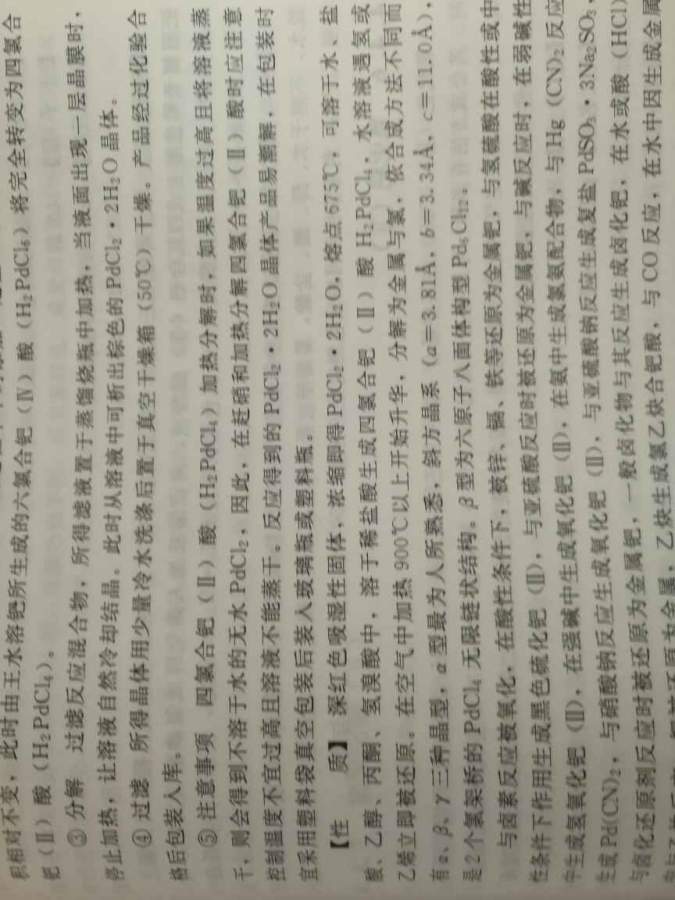 积相对不变，此时由王水溶钯所生成的六氯合钯（Ⅳ）酸（H₂PdCl₆）将完全转变为四氯合
钯（Ⅱ）酸（H₂PdCl₄）。
③ 分解 过滤反应混合物，所得滤液置于蒸馏烧瓶中加热，当液面出现一层晶膜时，
停止加热，让溶液自然冷却结晶。此时从溶液中可析出棕色的 PdCl₂・2H₂O 晶体。
④ 过滤 所得晶体用少量冷水洗涤后置于真空干燥箱（50℃）干燥。产品经过化验合
格后包装入库。
⑤ 注意事项 四氯合钯（Ⅱ）酸（H₂PdCl₄）加热分解时，如果温度过高且将溶液蒸
干，则会得到不溶于水的无水 PdCl₂，因此，在赶硝和加热分解四氯合钯（Ⅱ）酸时应注意
控制温度不宜过高且溶液不能蒸干。反应得到的 PdCl₂・2H₂O 晶体产品易潮解，在包装时
宜采用塑料袋真空包装后装入玻璃瓶或塑料瓶。
【性 质】 深红色吸湿性固体，浓缩即得 PdCl₂・2H₂O，熔点 675℃，可溶于水、盐
酸、乙醇、丙酮、氢溴酸中，溶于稀盐酸生成四氯合钯（Ⅱ）酸 H₂PdCl₄，水溶液遇氢或
乙烯立即被还原。在空气中加热 900℃以上开始升华，分解为金属与氯，依合成方法不同而
有 α、β、γ 三种晶型，α 型最为人所熟悉，斜方晶系（a＝3.81Å，b＝3.34Å，c＝11.0Å），
是 2 个氯架桥的 PdCl₄ 无限链状结构。β 型为六原子八面体构型 Pd₆Cl₁₂。
与卤素反应被氧化，在酸性条件下，被锌、镉、铁等还原为金属钯，与氢硫酸在酸性或中
性条件下作用生成黑色硫化钯（Ⅱ），与亚硫酸反应时被还原为金属钯，与碱反应时，在弱碱性
中生成氢氧化钯（Ⅱ），在强碱中生成氧化钯（Ⅱ），在氨中生成氯氨配合物，与 Hg（CN）₂ 反应
生成 Pd(CN)₂，与硝酸钠反应生成氧化钯（Ⅱ），与亚硫酸钠反应生成复盐 PdSO₃・3Na₂SO₃，
与卤化还原剂反应时被还原为金属钯，一般卤化物与其反应生成卤化钯，在水或酸（HCl）
中与乙炔反应，钯被还原为金属，乙炔生成氯乙炔合钯酸，与 CO 反应，在水中因生成金属